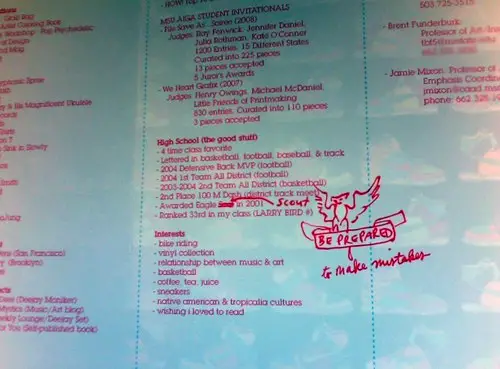 - HOW
MSU AIGA STUDENT INVITATIONALS
- File Save As...Soiren (2008)
Judges: Roy Fenwick, Jennifer Daniel,
Julia Rothman, Kate O'Connor
1200 Entries, 15 Different States
Curated into 225 pieces
13 pieces accepted
5 Juror's Awards
- We Heart Grafix (2007)
Judges: Henry Owings, Michael McDaniel,
Little Friends of Printmaking
830 entries, Curated into 110 pieces
3 pieces accepted
High School (the good stuff)
- 4 time class favorite
- Lettered in basketball, football, baseball, & track
- 2004 Defensive Back MVP (football)
- 2004 1st Team All District (football)
- 2003-2004 2nd Team All District (basketball)
- 2nd Place 100 M Dash (district track meet)
- Awarded Eagle in 2001
Scout
- Ranked 33rd in my class (LARRY BIRD #)
BE PREPARED
to make mistakes
Interests
- bike riding
- vinyl collection
- relationship between music & art
- basketball
- coffee, tea, juice
- sneakers
- native american & tropicalia cultures
- wishing i loved to read
Workshop - Pop-Psychedelic
of Design
Spree
& His Magnificent Ukulele
Sink in Slowly
(San Francisco)
(Brooklyn)
Dees (Deejay Moniker)
(Music/Art blog)
Lounge/Deejay Set)
for You (Self-published book)
503.725.3515
- Brent Funderburk
Professor of Art
- Jamie Mixon, Professor of
Emphasis Coordin
phone: 662.325